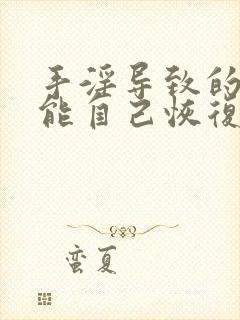 手淫导致的
能自己恢復
蛮夏